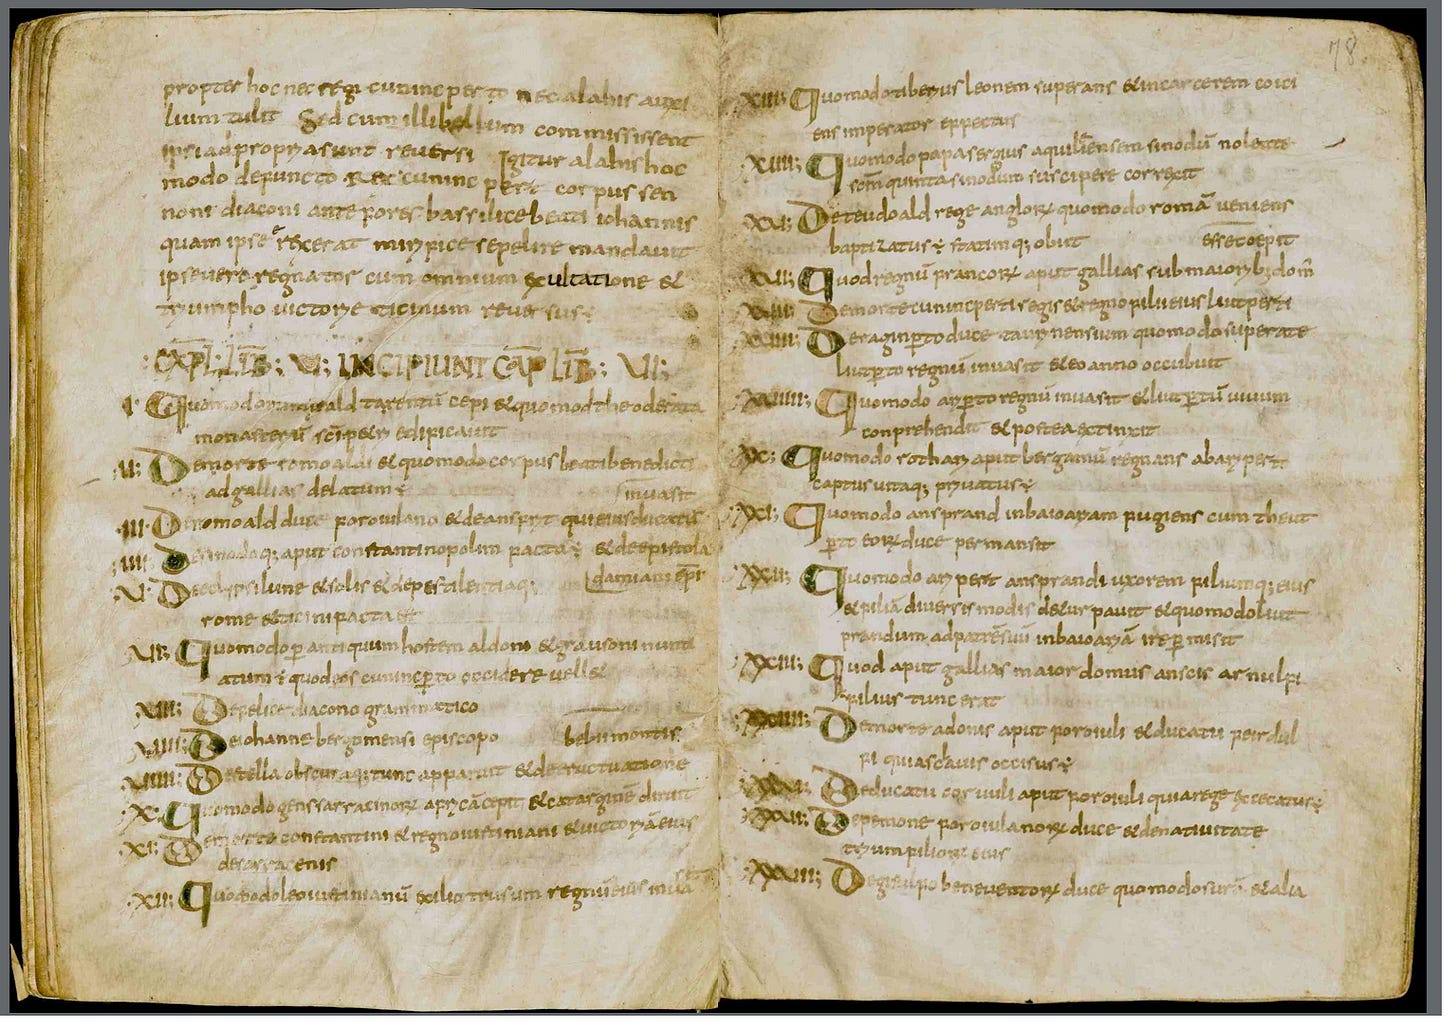 propter hoc nec regi cunincperto nec alahis auxi
lium tulit Sed cum illi bellum commississent
ipsi ad propria sunt reversi Igitur alahis hoc
modo defuncto Rex cunincpert corpus sen
noni diaconi ante fores bassilice beati iohannis
quam ipse rexcerat mirifice sepelire mandavit
ipse vero regnator cum omnium exultatione &
triumpho victorie ticinum reversus÷
EXPL LIB V; INCIPIUNT CAPL LIB; VI;
I Quomodo romuald tarentū cepi & quomod theoderata
monasteriū sci petri edificavit
II; De morte romoaldi & quomodo corpus beati benedicti
ad gallias delatum÷
invasit
III; De romoald duce foroiulano & de ansfrit qui eius ducatū
IIII; De sinodo q; aput constantinopolim facta÷ & de epistola
V; De eclypsi lune & solis & de pestilentia q;
damiani epī
rome & ticini facta st
VI; Quomodo p antiquum hostem aldoni & grausoni nunti
atum ÷ quod eos cunincpto occidere vell&
VII; De felice diacono grammatico
VIII; De iohanne bergomensi episcopo
bebii montis
VIIII; De stella obscura q; tunc apparuit & de eructuatione
X; Quomodo gens sarracinorz africā cepit & cartaginē diruit
XI; De morte constantini & regno iustiniani & victoriā eius
de sarracenis
XII; Quomodo leo iustinianū exilio trusum regnū eius invasit
78
XIII; Quomodo tiberius leonem superans & in carcerem coici
ens imperator effectus
XIIII; Quomodo papa sergius aquiliensem sinodū nolente
scm quinta sinodum suscipere correxit
XV; De teudoald rege anglorz quomodo romā veniens
baptizatus ÷ statim q; obiit
esse coepit
XVI; Quod regnū francorz aput gallias sub maiorib; dom
XVII; De morte cunincperti regis & regno filii eius liutperti
XVIII; De raginpto duce taurinensium quomodo superate
liutpto regnū invasit & eo anno occubuit
XVIIII; Quomodo aripto regnū invasit & liutptū vivum
conprehendit & postea extinxit
XX; Quomodo rothari aput bergamū regnans ab aripert
captus vitaq; privatus÷
XXI; Quomodo ansprand in baioariam fugiens cum theut
pto eorz duce permansit
XXII; Quomodo aripert ansprandi uxorem filiumq; eius
& filiā diversis modis deturpavit & quomodo liut
prandum ad patrē suū in baioariā ire pmisit
XXIII; Quod aput gallias maior domus anscis arnulfi
filius tunc erat
XXIIII; De morte adonis aput foroiuli & ducatu ferdul
fi qui a sclavis occisus÷
XXV; De ducatu corvuli aput foroiuli qui a rege excecatus÷
XXVI; De pemone foroiulanorz duce & de nativitate
trium filiorz eius
XXVII; De gisulfo beneventorz duce quomodo surā & alia